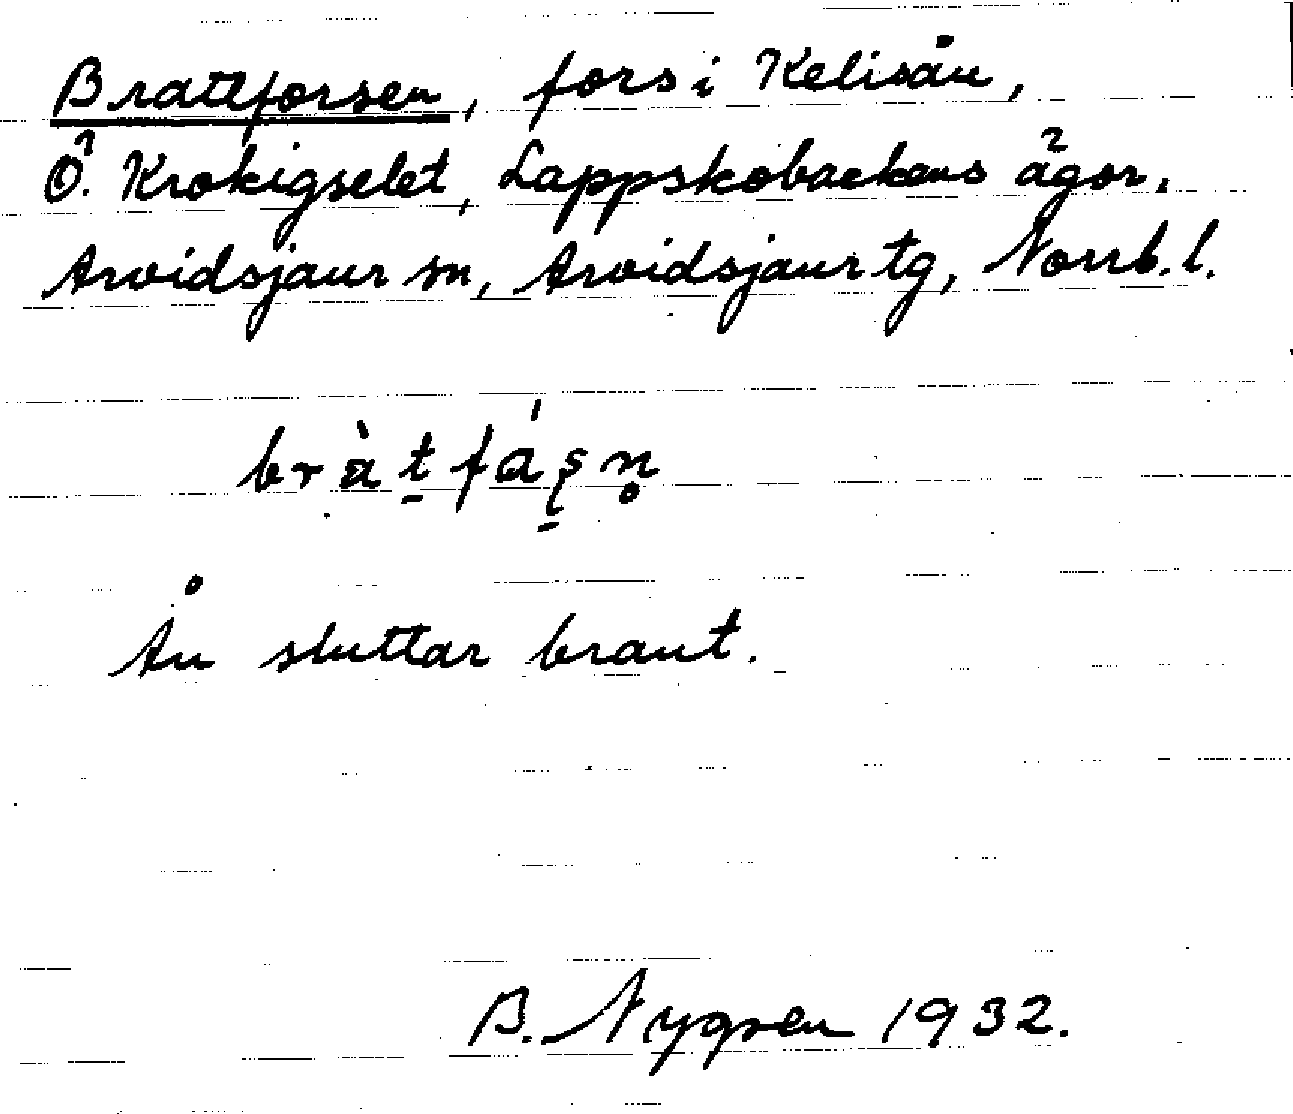 Brattforsen, fors i Kelisån,
Ö. Krokigselet, Lappskobackens ägor,
Arvidsjaur sn, Arvidsjaur tg, Norrb. l.
bràt̠fáʂn̥
Ån sluttar brant.
B. Nygren 1932.